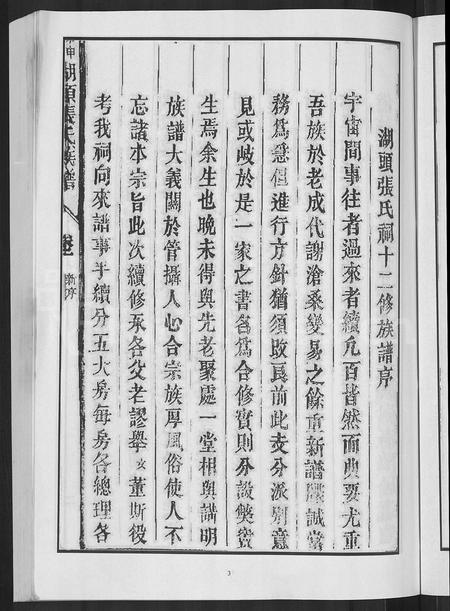 湖頭張氏祠十二修族譜序
宇宙間事往者過來者續凡百皆然而典要尤重
吾族於老成代謝滄桑變易之餘重新譜牒誠當
務為急但進行方針猶須改良前此支分派別意
見或岐於是一家之書名為合修實則分設獎鑒
生焉余生也晚未得與先老聚處一堂相與講明
族譜大義關於管攝人心合宗族厚風俗使人不
忘諸本宗旨此次續修承各父老謬舉 董斯役
考我祠向來譜事手續分五大房每房各總理各
申湖頭張氏族譜
卷
新序
3